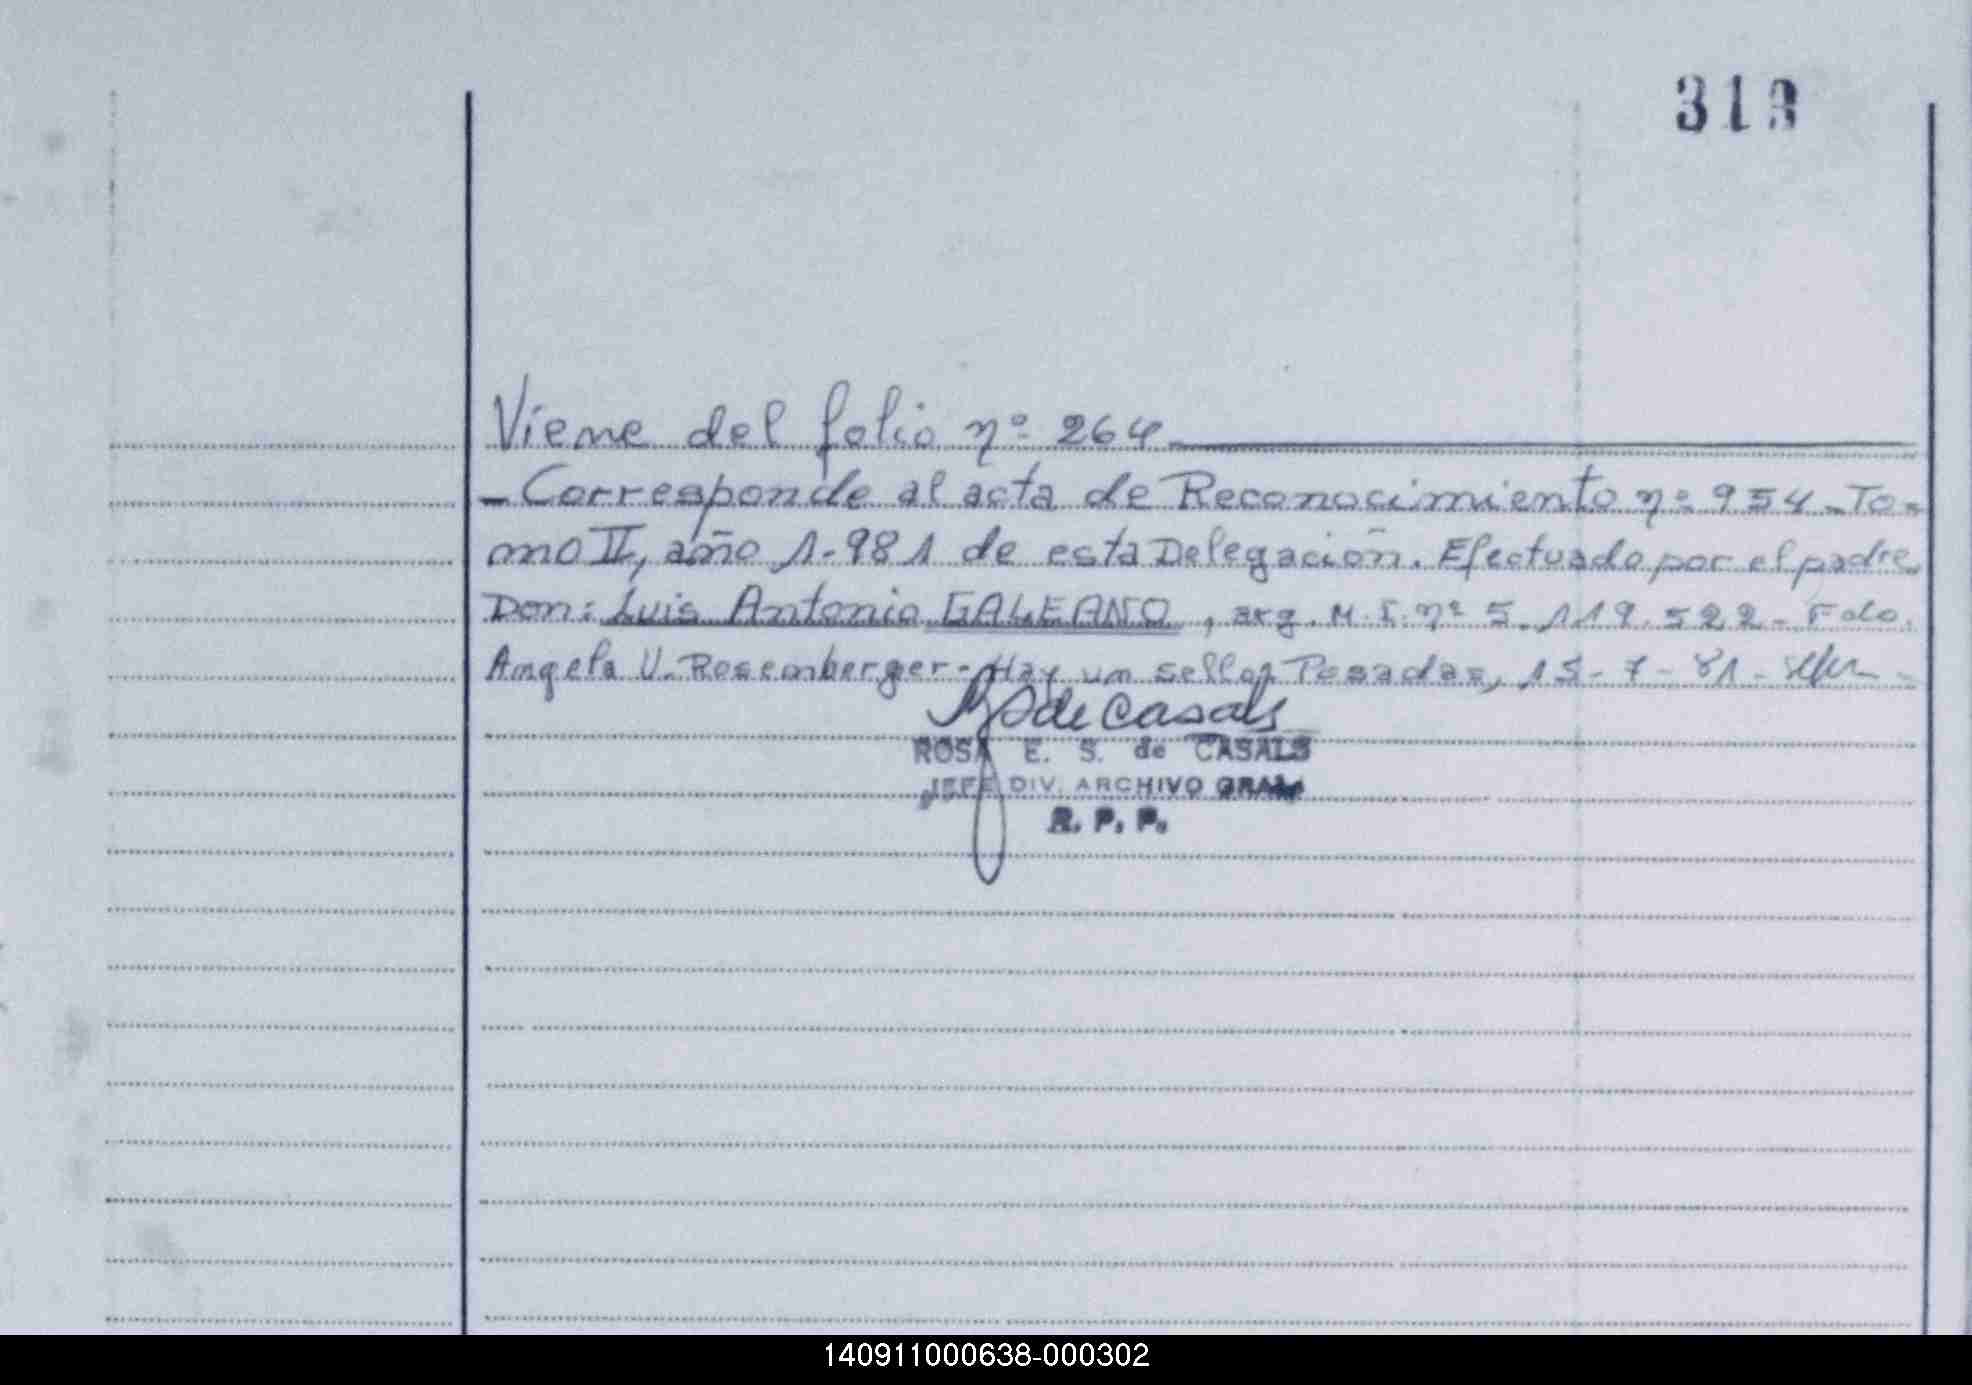 313
Viene del folio nº 264
- Corresponde al acta de Reconocimiento nº 954 - To-
mo II, año 1-981 de esta Delegación. Efectuado por el padre
Don: Luis Antonio GALEANO, arg. M.I. nº 5.119.522 - Fdo.
Angela V. Rosemberger - Hay un sello, Posadas, 15-7-81 -
de Casals
ROSA E. S. de CASALS
JEFE DIV. ARCHIVO GRAL
R. P. P.
140911000638-000302